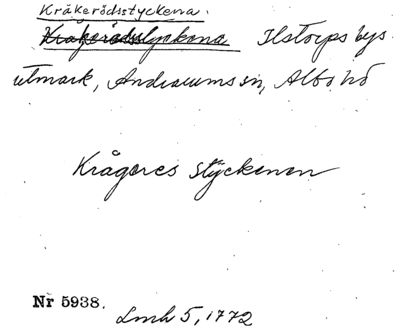 Kråkerödsstyckena.
Kråkerödslyckona Ilstorps bys
utmark, Andrarums sn, Albo hd
Krågeres styckenen
Nr 5938.
Lmh 5, 1772